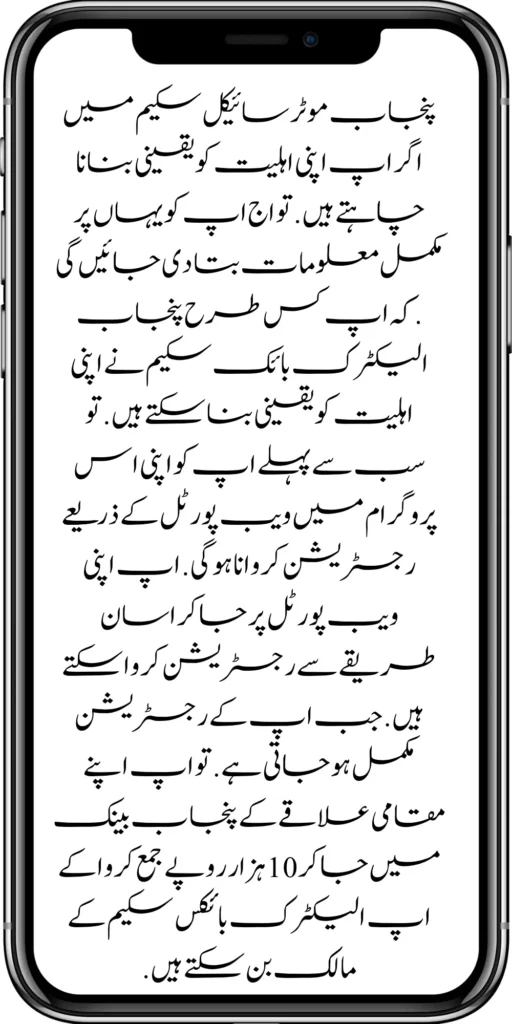 پنجاب موٹر سائیکل سکیم میں
اگر اپ اپنی اہلیت کو یقینی بنانا
چاہتے ہیں. تو اج اپ کو یہاں پر
مکمل معلومات بتا دی جائیں گی
. کہ اپ کس طرح پنجاب
الیکٹرک بائک سکیم نے اپنی
اہلیت کو یقینی بنا سکتے ہیں. تو
سب سے پہلے اپ کو اپنی اس
پروگرام میں ویب پورٹل کے ذریعے
رجسٹریشن کروانا ہوگی. اپ اپنی
ویب پورٹل پر جا کر اسان
طریقے سے رجسٹریشن کروا سکتے
ہیں. جب اپ کے رجسٹریشن
مکمل ہو جاتی ہے. تو اپ اپنے
مقامی علاقے کے پنجاب بینک
میں جا کر 10 ہزار روپے جمع کروا کے
اپ الیکٹرک بائکس سکیم کے
مالک بن سکتے ہیں.